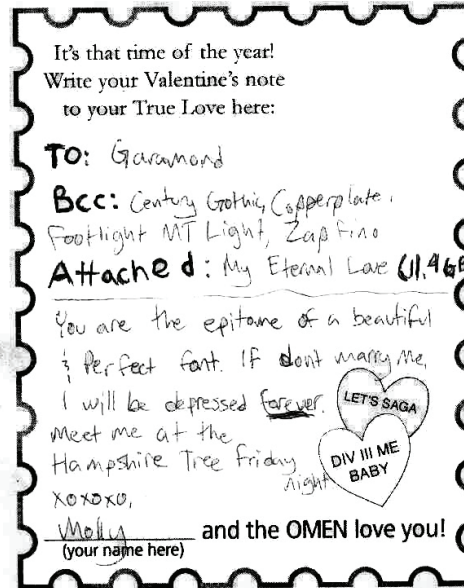 It's that time of the year!
Write your Valentine's note
to your True Love here:
TO: Garamond
Bcc: Century Gothic, Copperplate,
Footlight MT Light, Zapfino
Attached: My Eternal Love (11.4 GB
You are the epitome of a beautiful
& Perfect font. If dont marry me,
I will be depressed forever.
Meet me at the
Hampshire Tree Friday
night
xoxoxo,
LET'S SAGA
DIV III ME
BABY
Molly and the OMEN love you!
(your name here)